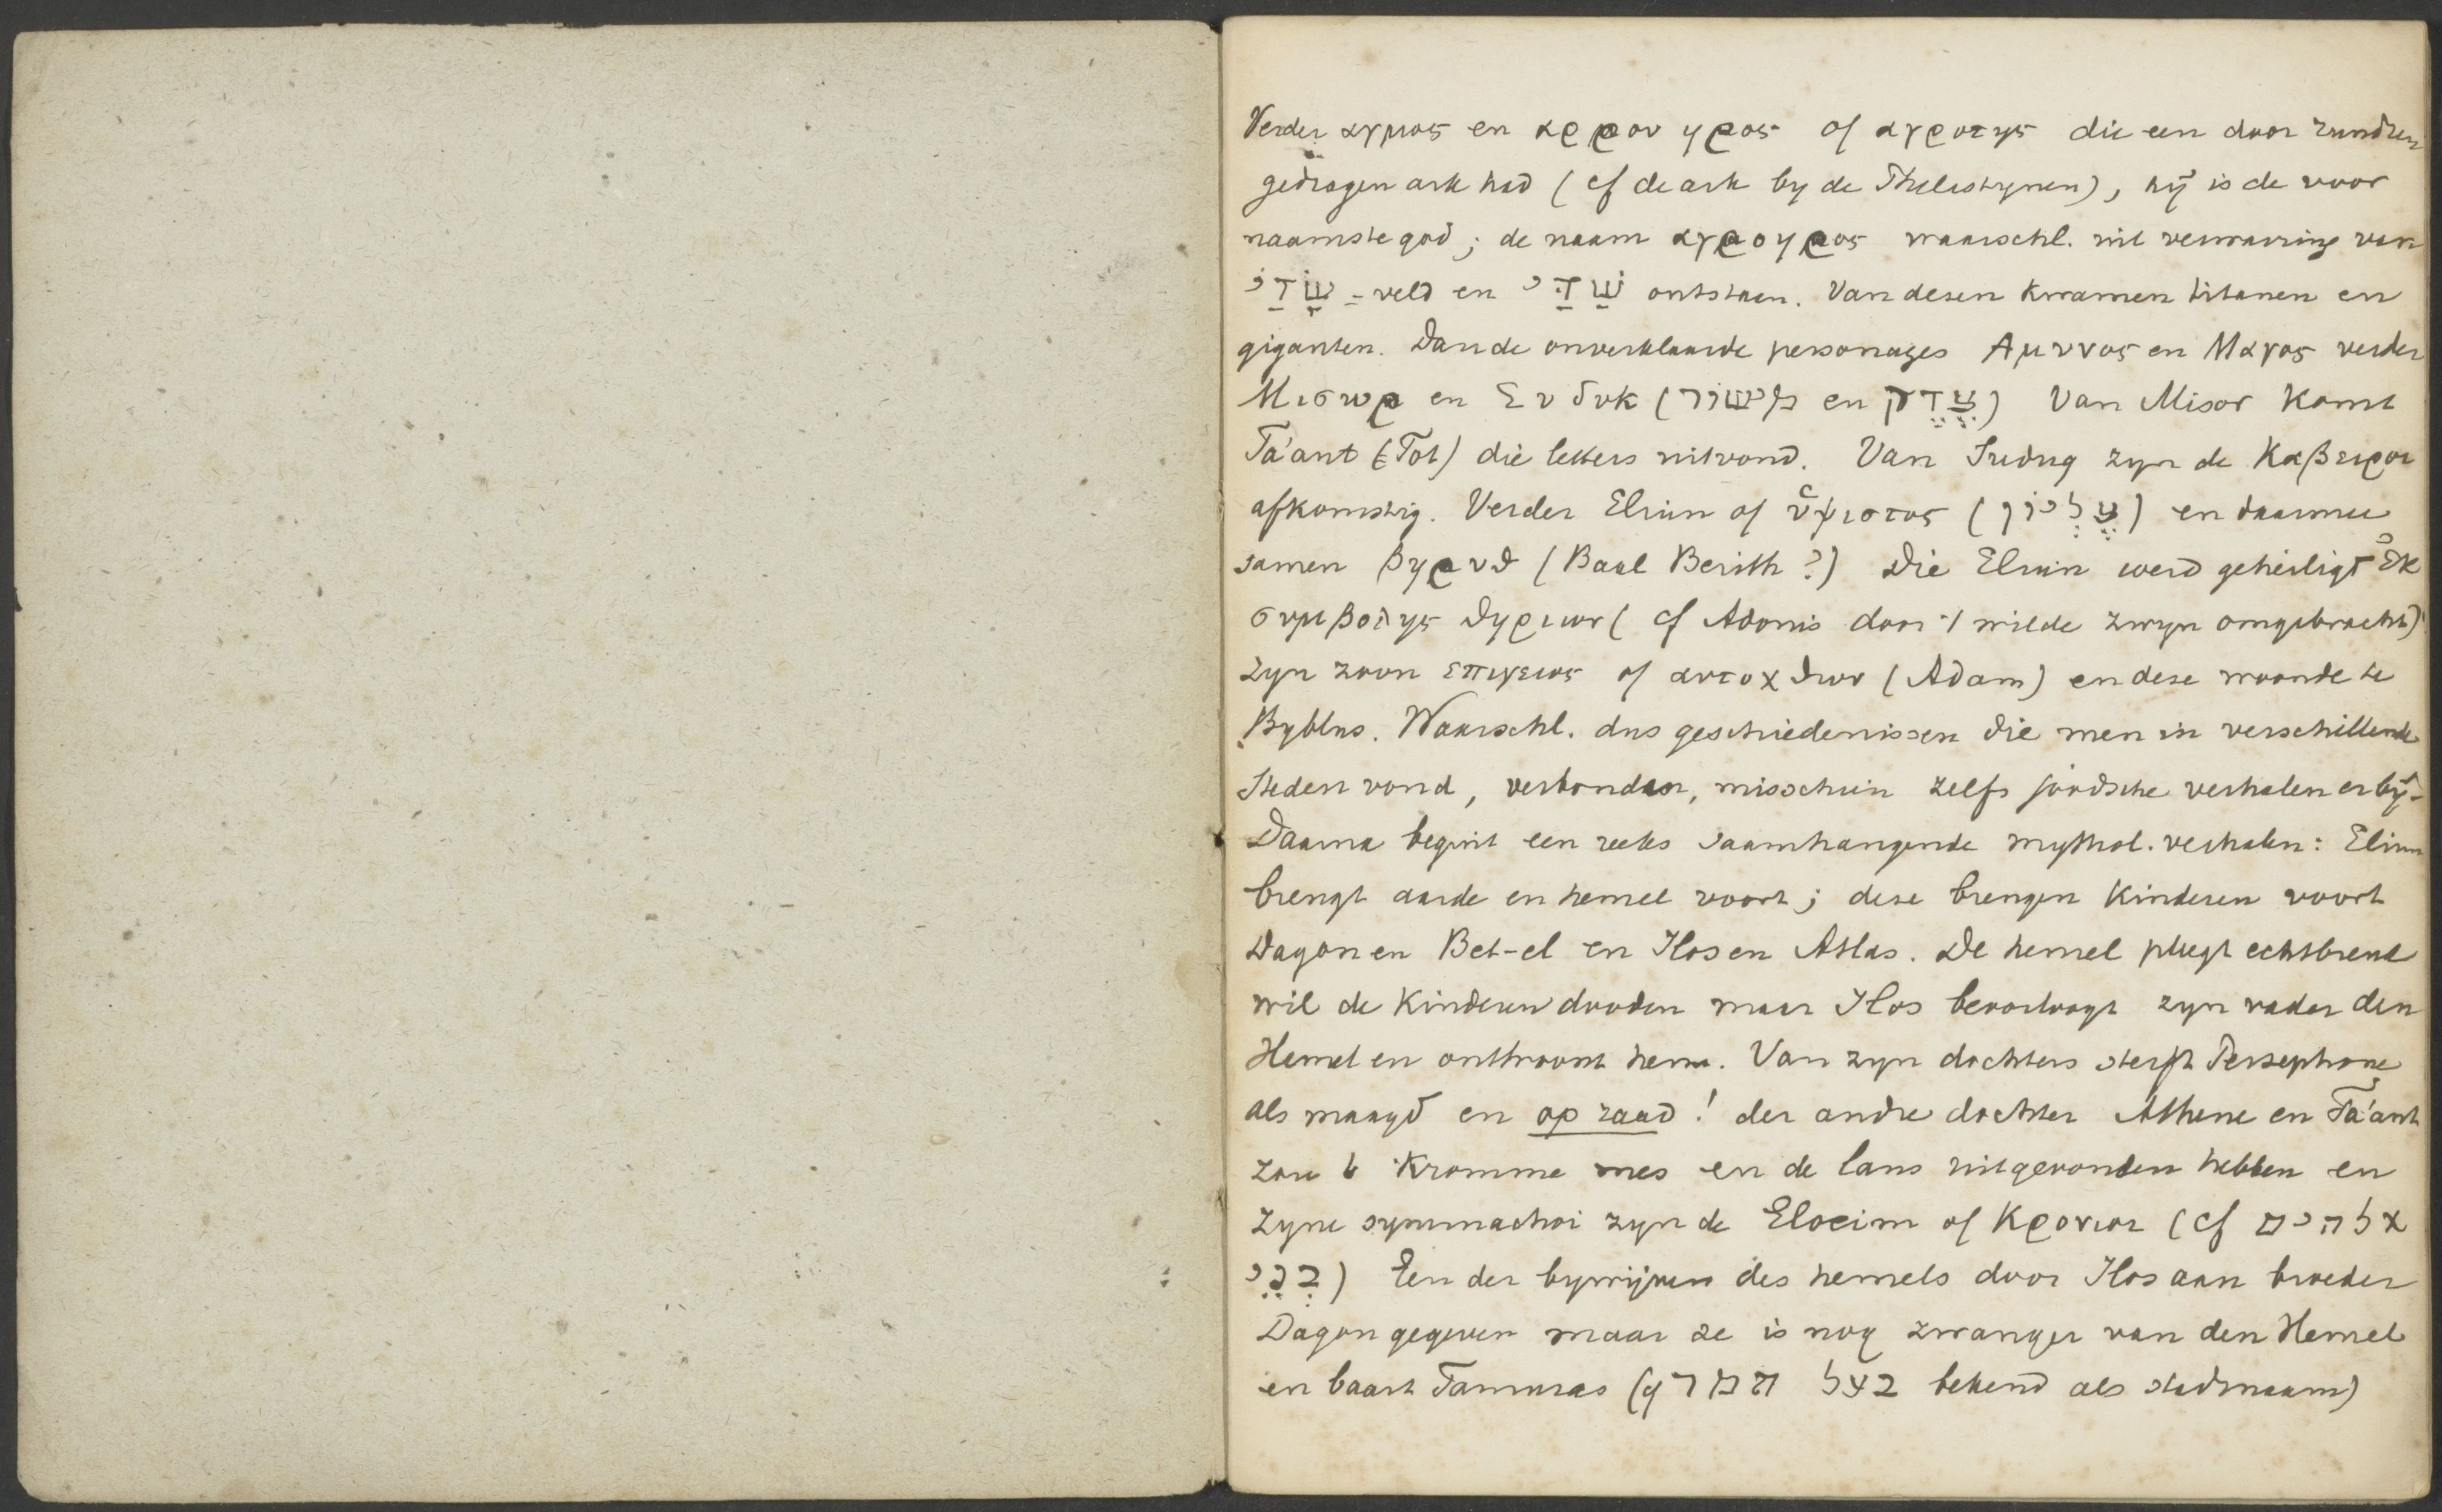 Verder αγρος en αρρου ηρος of αγροτης die een door runderen
gedragen ark had (cf de ark by de Philistynen), hÿ is de voor
naamste god; de naam αγρουηρος waarschl. uit verwarring van
שָׂדַי = veld en שַׁדַּי ontstaan. Van dezen kwamen titanen en
giganten. Dan de onverklaarde personages Αμυνος en Μαγος verder
Μισωρ en Συδυκ (מישור en צֶדֶק) Van Misor komt
Ta'aut (Tot) die letters uitvond. Van Suduq zyn de Καβειροι
afkomstig. Verder Eliun of ὕψιστος (עֶלְיוֹן) en daarmee
samen βηρυθ (Baal Berith?) Die Eliun werd geheiligd ἐκ
συμβολης θηριων (cf Adonis door 't wilde zwyn omgebracht)
zyn zoon επιγειος of αυτοχθων (Adam) en deze woonde te
Byblus. Waarschl. dus geschiedenissen die men in verschillende
steden vond, verbonden, misschien zelfs joodsche verhalen erbÿ.
Daarna begint een reeks saamhangende mythol. verhalen: Eliun
brengt aarde en hemel voort; deze brengen kinderen voort
Dagon en Bet-el en Ilos en Atlas. De hemel pleegt echtbreuk
wil de kinderen dooden maar Ilos beoorloogt zyn vader den
Hemel en onthroont hem. Van zyn dochters sterft Persephone
als maagd en op raad! der andre dochter Athene en Ta'aut
zou 't kromme mes en de lans uitgevonden hebben en
zyne symmachoi zyn de Eloeim of Κρονιοι (cf אלהים
בְּנֵי) Een der bywijven des hemels door Ilos aan broeder
Dagon gegeven maar ze is nog zwanger van den Hemel
en baart Tamuras (בעל תמר bekend als stadsnaam)